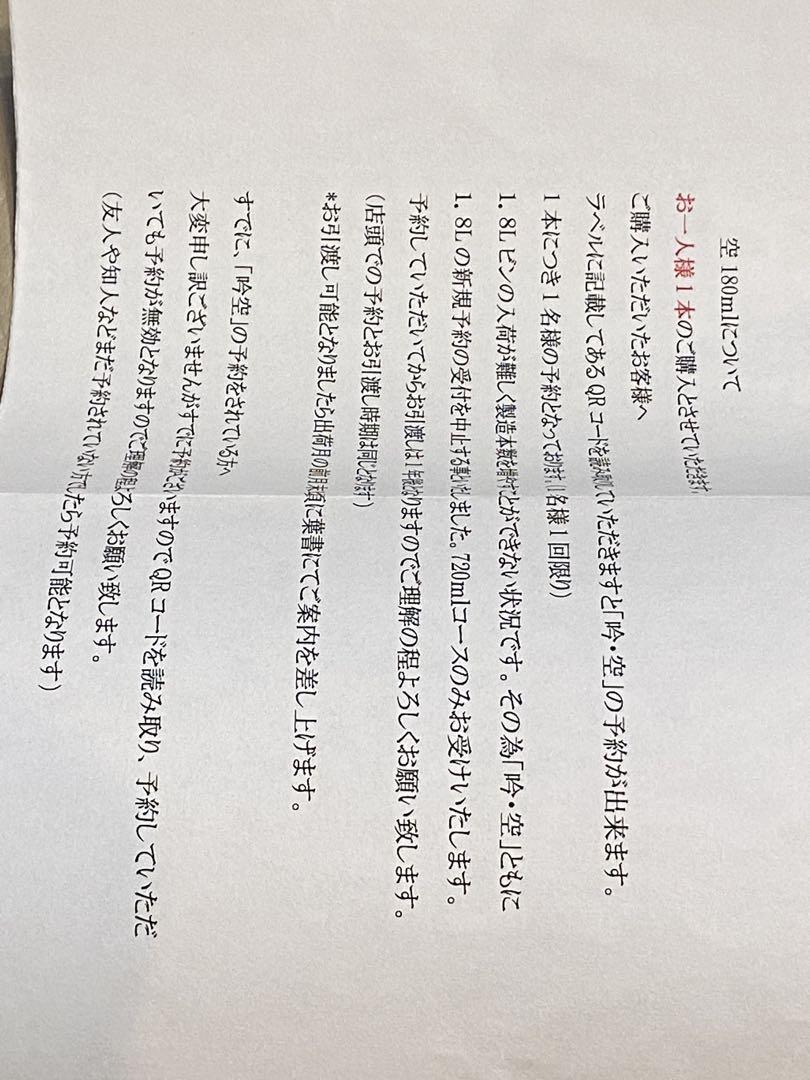 空 180mlについて
お一人様1本のご購入とさせていただきます。
ご購入いただいたお客様へ
ラベルに記載してあるQRコードを読み取っていただきますと「吟・空」の予約が出来ます。
1本につき1名様の予約となっております。(1名様1回限り)
1.8Lビンの入荷が難しく製造本数を増やすことができない状況です。その為「吟・空」ともに
1.8Lの新規予約の受付を中止する事といたしました。720mlコースのみお受けいたします。
予約していただいてからお引渡しは1年後となりますのでご理解の程よろしくお願い致します。
(店頭での予約とお引渡し時期は同じとなります)
*お引渡し可能となりましたら出荷月の前月末頃に葉書にてご案内を差し上げます。
すでに、「吟空」の予約をされている方へ
大変申し訳ございませんがすでに予約がございますのでQRコードを読み取り、予約していただ
いても予約が無効となりますのでご理解の程よろしくお願い致します。
(友人や知人などまだ予約されていない方でしたら予約可能となります)